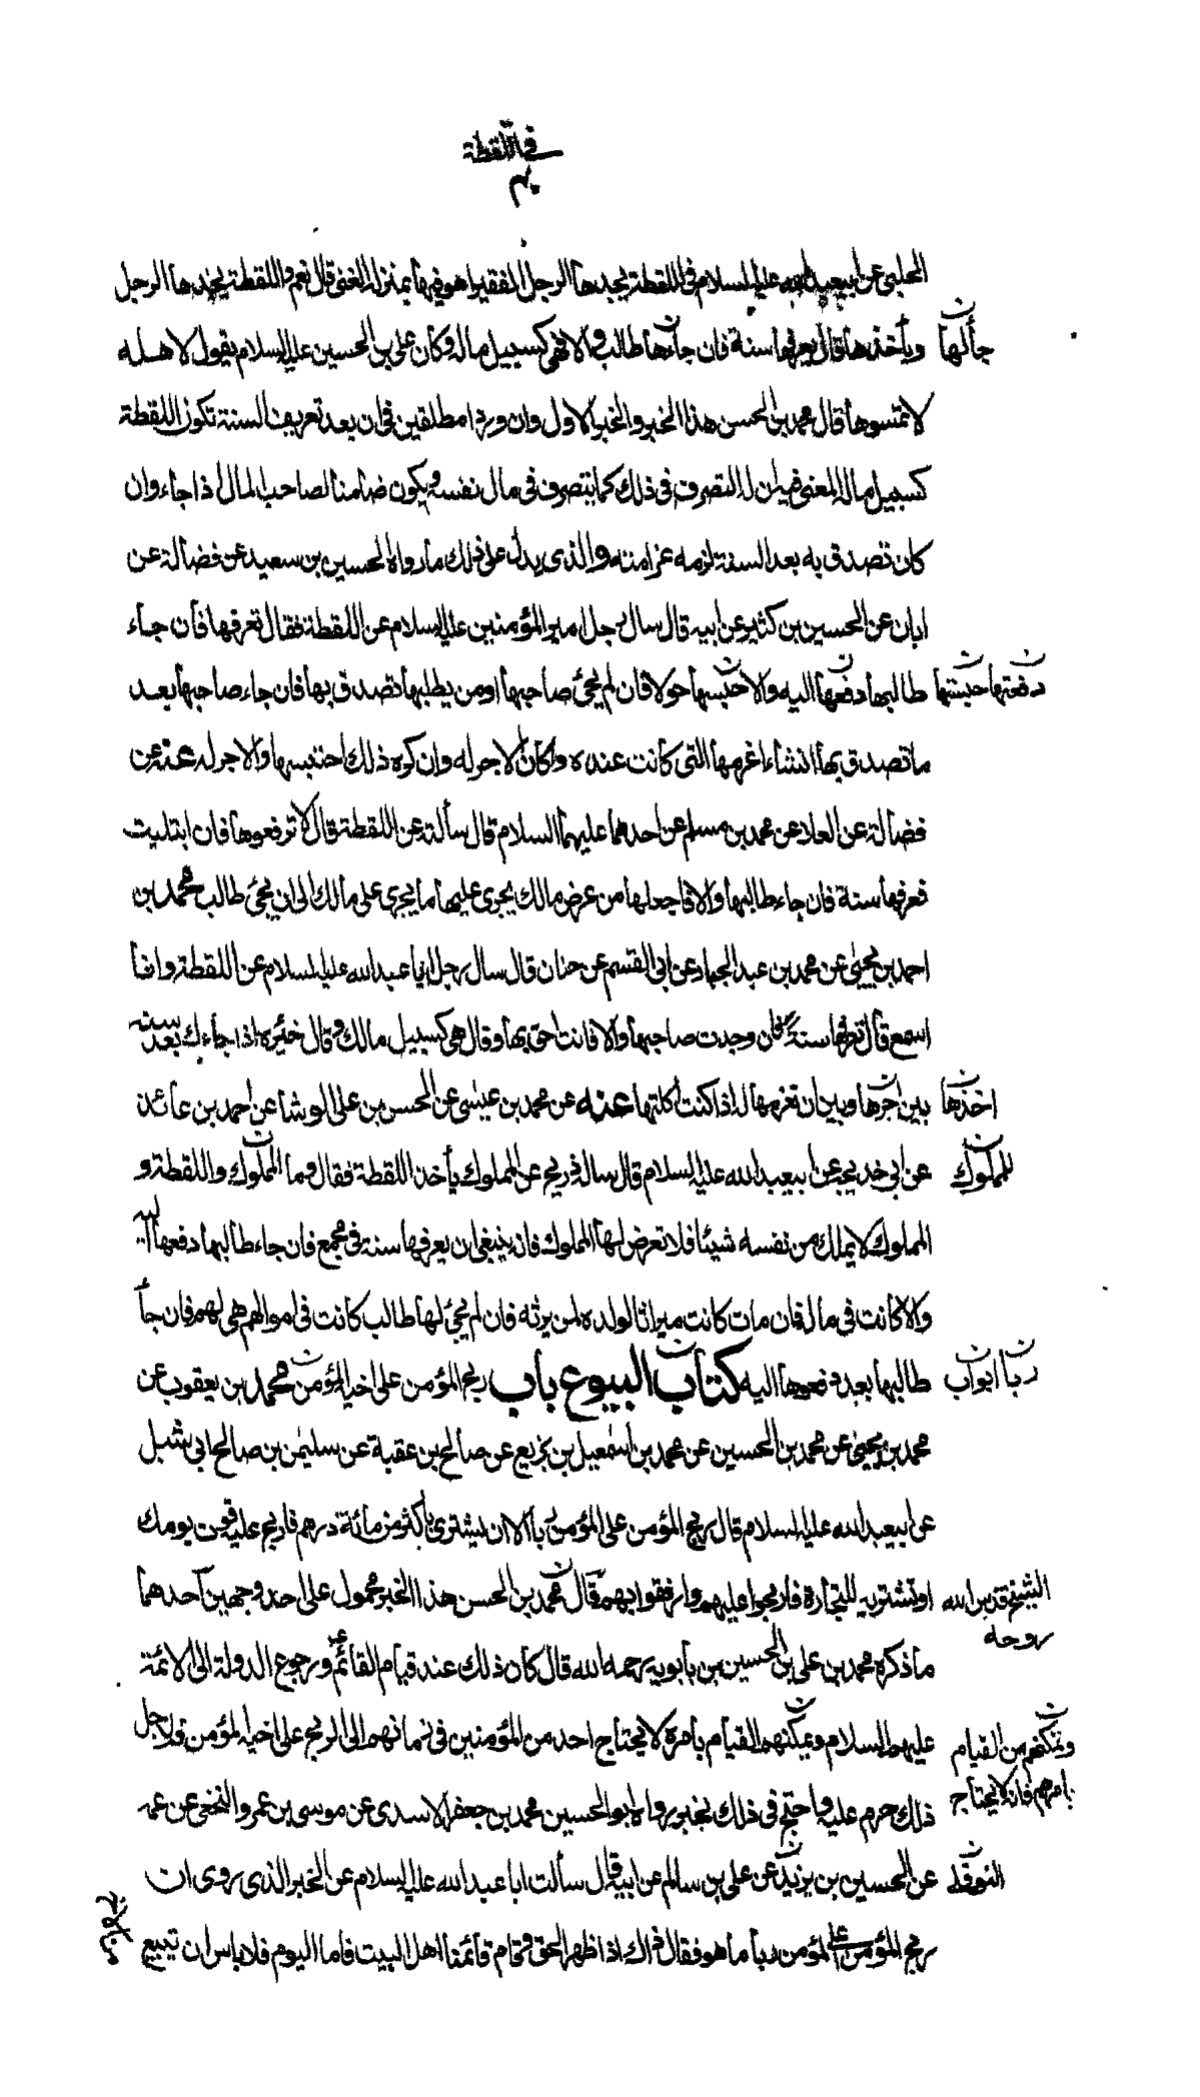 في اللقطة
الحلبي عن ابيعبد الله عليه السلام في اللقطة يجدها الرجل الفقير اهو فيها بمنزلة الغني قال نعم واللقطة يجدها الرجل
ويأخذها قال يعرفها سنة فان جاءها طالب والا فهي كسبيل ماله وكان علي بن الحسين عليه السلام يقول لاهله
جاء لها
لا تمسوها قال محمد بن الحسن هذا الخبر والخبر الاول وان وردا مطلقين في ان بعد تعريف السنة تكون اللقطة
كسبيل ماله المعني فيه ان له التصرف في ذلك كما يتصرف في مال نفسه ويكون ضامنا لصاحب المال اذا جاء وان
كان تصدق به بعد السنة لزمه غرامته والذي يدل على ذلك ما رواه الحسين بن سعيد عن فضالة عن
ابان عن الحسين بن كثير عن ابيه قال سال رجل امير المؤمنين عليه السلام عن اللقطة فقال تعرفها فان جاء
طالبها دفعها اليه والا حبسها حولا فان لم يجئ صاحبها او من يطلبها تصدق بها فان جاء صاحبها بعد
دفعتها حبستها
ما تصدق بها ان شاء اغرمها التي كانت عنده وكان الاجر له وان كره ذلك احتبسها والاجر له عنه عن
فضالة عن العلا عن محمد بن مسلم عن احدهما عليهما السلام قال سألته عن اللقطة قال لا ترفعوها فان ابتليت
فعرفها سنة فان جاء طالبها والا فاجعلها من عرض مالك يجري عليها ما يجري على مالك الى ان يجئ طالب محمد بن
احمد بن يحيى عن محمد بن عبد الجبار عن ابي القسم عن حنان قال سال رجل ابا عبد الله عليه السلام عن اللقطة وانا
اسمع قال تعرفها سنة فان وجدت صاحبها والا فانت احق بها وقال هي كسبيل مالك وقال خيره اذا جاءك بعد سنة
بين اجرها وبين ان تغرمها له اذا كنت اكلتها عنه عن محمد بن عيسى عن الحسن بن علي الوشا عن احمد بن عائذ
اخذها
عن ابي خديجة عن ابيعبد الله عليه السلام قال ساله ذريح عن المملوك يأخذ اللقطة فقال وما المملوك واللقطة و
للمملوك
المملوك لا يملك من نفسه شيئا فلا تعرض لها المملوك فانه ينبغي ان يعرفها سنة في مجمع فان جاء طالبها دفعها اليه
والا كانت في ماله فان مات كانت ميراثا لولده لمن يرثه فان لم يجئ لها طالب كانت في اموالهم هي لهم فان جاء
طالبها بعد دفعوها اليه كتاب البيوع باب ربح المؤمن على اخيه المؤمن محمد بن يعقوب عن
ابواب
محمد بن يحيى عن محمد بن الحسين عن محمد بن اسمعيل بن بزيع عن صالح بن عقبة عن سليمن بن صالح ابي شبل
عن ابيعبد الله عليه السلام قال ربح المؤمن على المؤمن ربا الا ان يشتري باكثر من مائة درهم فاربح عليه قوت يومك
او تشتريه للتجارة فاربحوا عليهم وارفقوا بهم قال محمد بن الحسن هذا الخبر محمول على احد وجهين احدهما
الشيخ قدس الله
روحه
ما ذكره محمد بن علي بن الحسين بن بابويه رحمه الله قال كان ذلك عند قيام القائم ورجوع الدولة الى الائمة
عليهم السلام وتمكنهم القيام بامره لا يحتاج احد من المؤمنين في زمانهم الى الربح على اخيه المؤمن ولاجل
وتمكنهم من القيام
بامرهم فانه لا يحتاج
ذلك حرم عليه واحتج في ذلك بخبر رواه ابو الحسين محمد بن جعفر الاسدي عن موسى بن عمر والنخعي عن عمه
عن الحسين بن يزيد عن علي بن سالم عن ابيه قال سألت ابا عبد الله عليه السلام عن الخبر الذي روى ان
النوفلي
ربح المؤمن على المؤمن ربا ما هو فقال ذاك اذا ظهر الحق وقام قائمنا اهل البيت فاما اليوم فلا باس ان تبيع